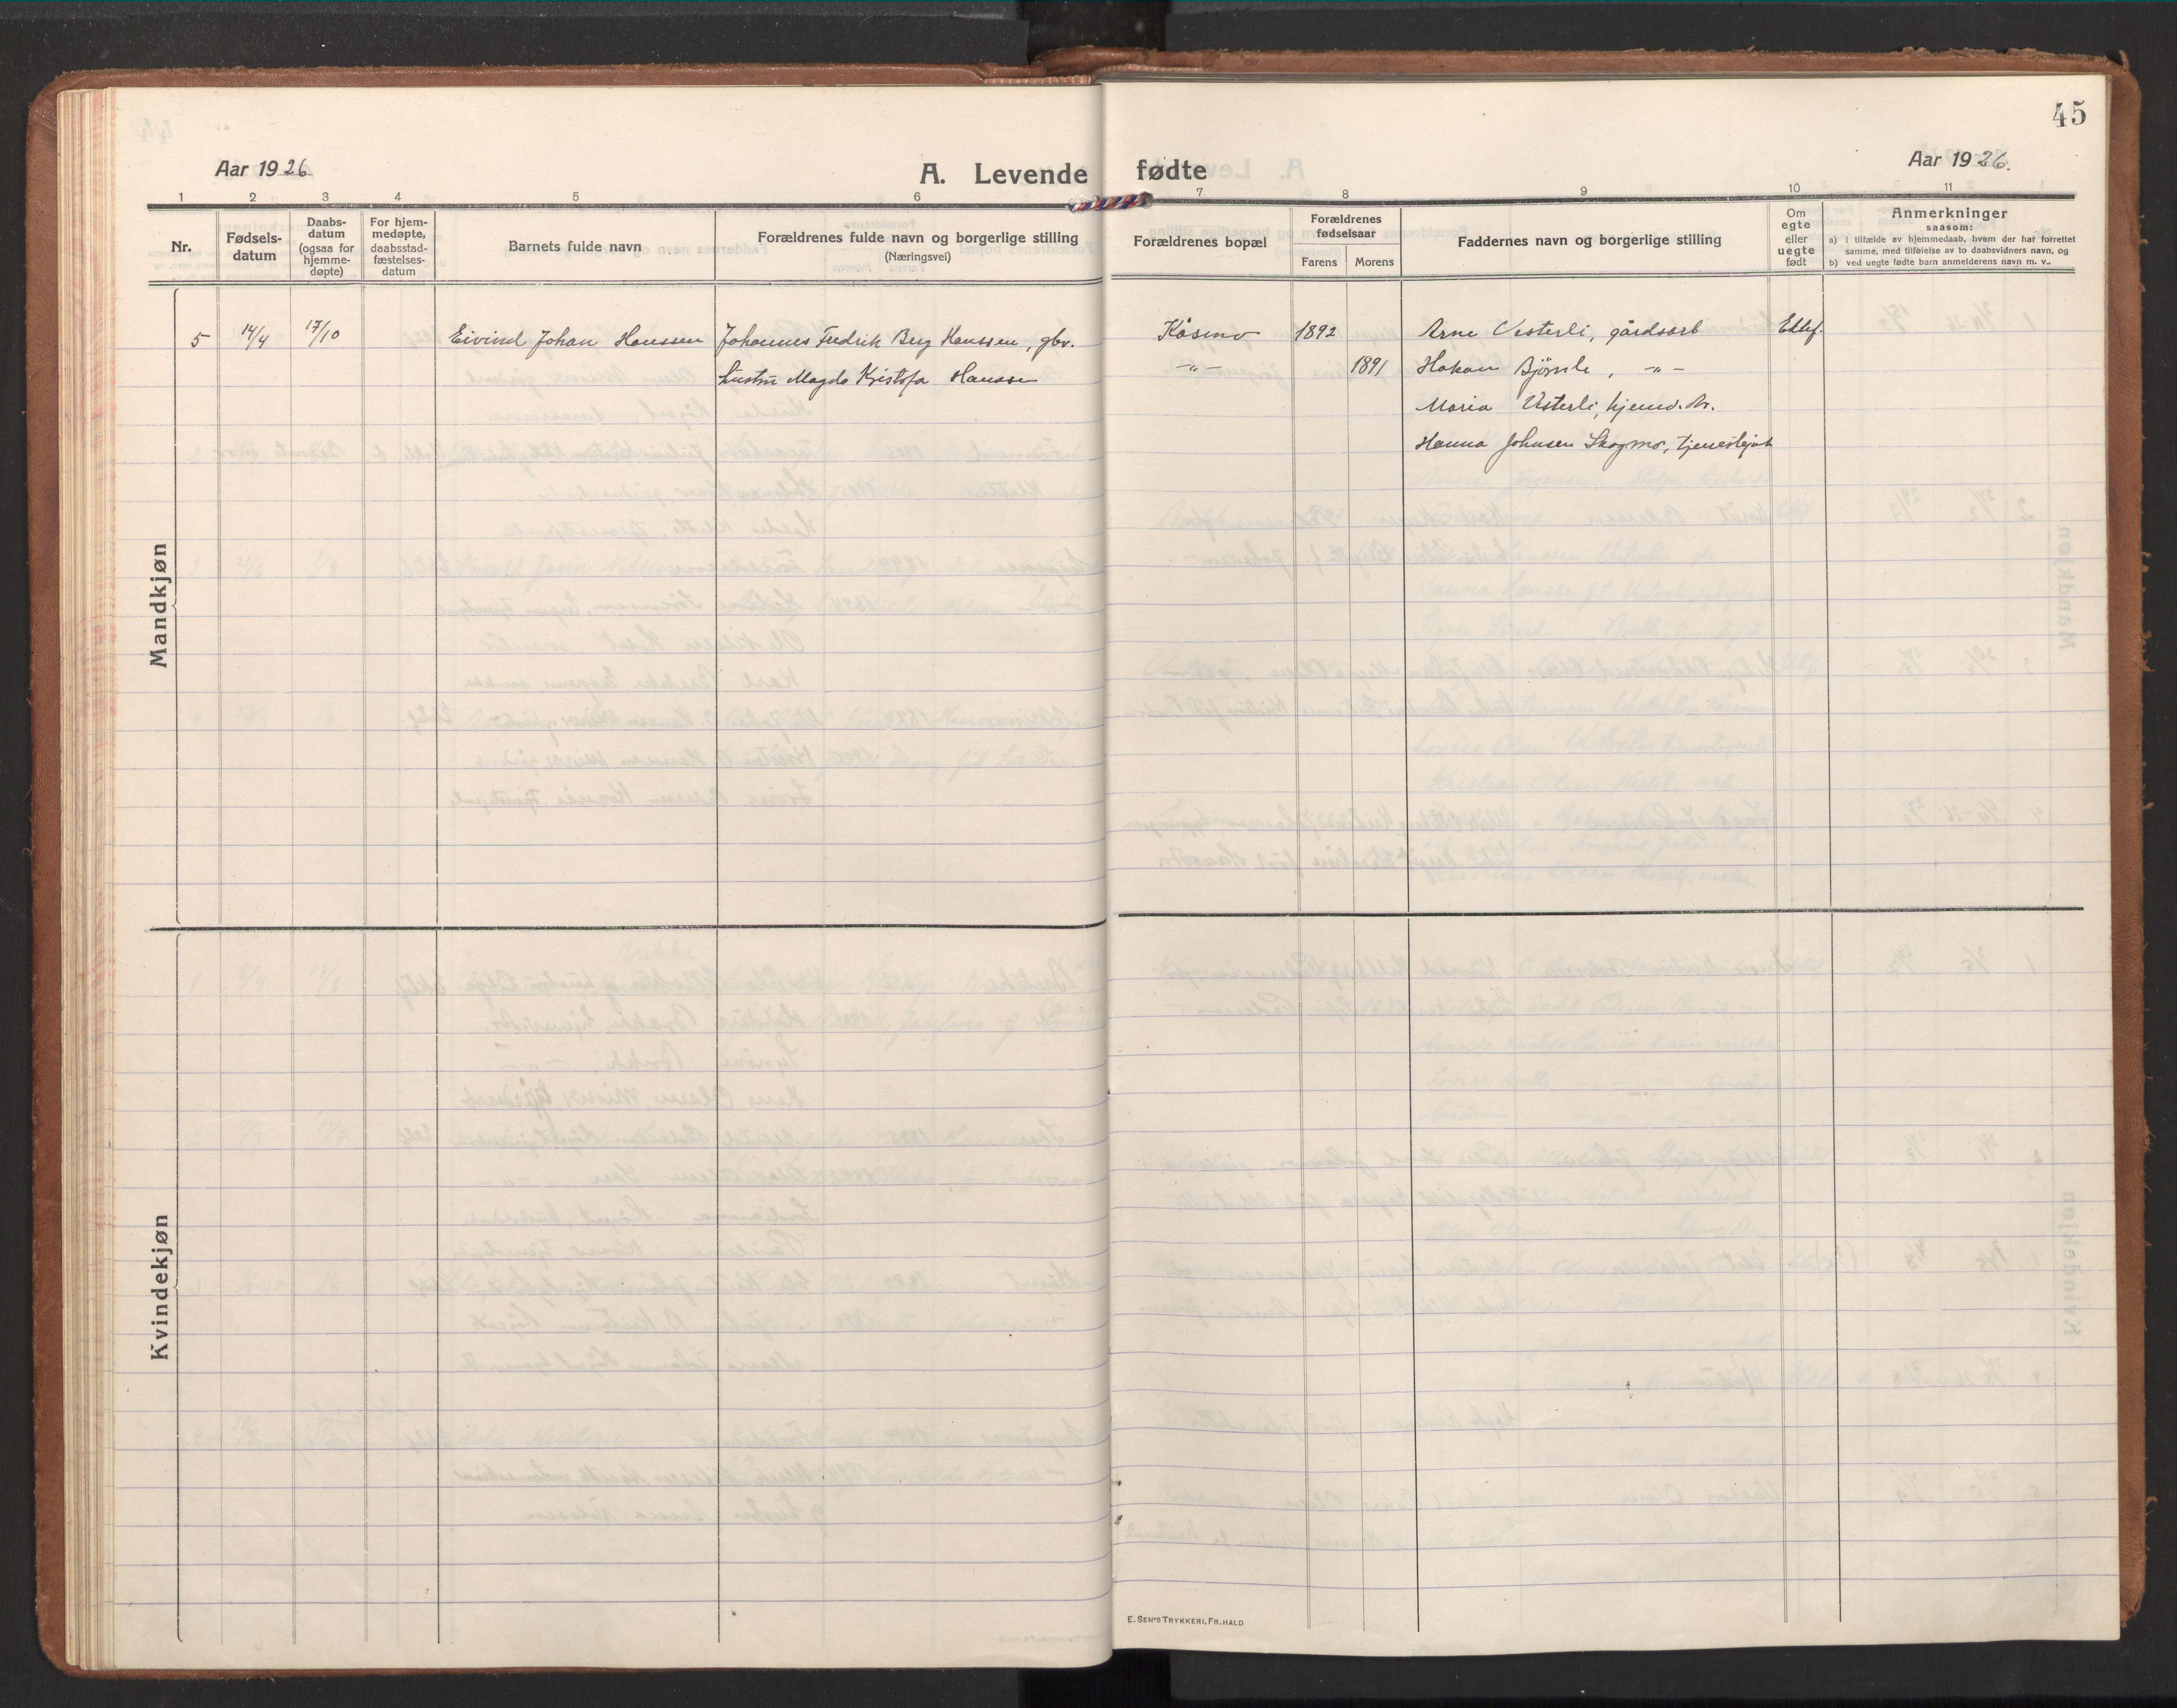 45
Aar 1926
A. Levende fødte
Aar 1926.
1 2 3 4 5 6 7 8 9 10 11
Nr.
Fødsels-
datum
Daabs-
datum
(ogsaa for
hjemme-
døpte)
For hjem-
medøpte,
daabsstad-
fæstelses-
datum
Barnets fulde navn
Forældrenes fulde navn og borgerlige stilling
(Næringsvei)
Forældrenes bopæl
Forældrenes
fødselsaar
Farens Morens
Faddernes navn og borgerlige stilling
Om
egte
eller
uegte
født
Anmerkninger
saasom:
a) i tilfælde av hjemmedaab, hvem der har forrettet
samme, med tilføielse av to daabsvidners navn, og
b) ved uegte fødte barn anmelderens navn m. v..
Mandkjøn
5 14/4 17/10 Eivind Johan Hanssen Johannes Fredrik Berg Hanssen, gbr. Kåsmo 1892 Arne Vesterli, gårdsarb Ektef.
hustru Magda Kristofa Hanssen -"- 1891 Hakon Bjørnli, -"-
Maria Vesterli, hjemv. dr.
Hanna Johnsen Skogmo, tjenestejent
Kvindekjøn
E. SEM'S TRYKKERI, FR.HALD